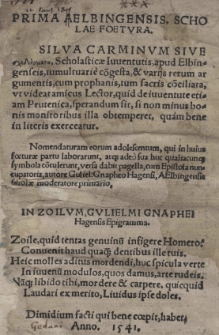 PRIMA AELBINGENSIS. SCHO
LAE FOETVRA.
SILVA CARMINVM SIVE
Scholasticæ Iuuentutis, apud Elbin-
genseis, tumultuariè cõgesta, & varijs rerum ar
gumentis, cum prophanis, tum sacris cõciliata,
vt videat amicus Lector, quid de iuuentute eti-
am Prutenica, sperandum sit, si non minus bo-
nis monitoribus illa obtemperet, quàm bene
in literis exerceatur.
Nomendaturam eorum adolescentum, qui in huius
foeturæ partu laborarunt, atq; adeò sua huc qualiacunq;
symbola cõtulerunt, versa dabit pagella, cum Epistola nun-
cupatoria, autore Gulielmo Gnapheo Hagensi, AElbingensis
scholæ moderatore primario,
IN ZOILVM, GVLIELMI GNAPHEI
Hagensis Epigramma.
Zoile, quid tentas genuinũ infigere Homero?
Conuenit haud quaq; dentibus ille tuis.
Heic molles aditus mordendi, huc spicula verte
In iuuenũ modulos, quos damus, arte rudeis.
Nũq; libido tibi, mordere & carpere, quicquid
Laudari ex merito, Liuidus ipse doles.
Dimidium facti qui bene cœpit, habet,
Gedani Anno. 1541.